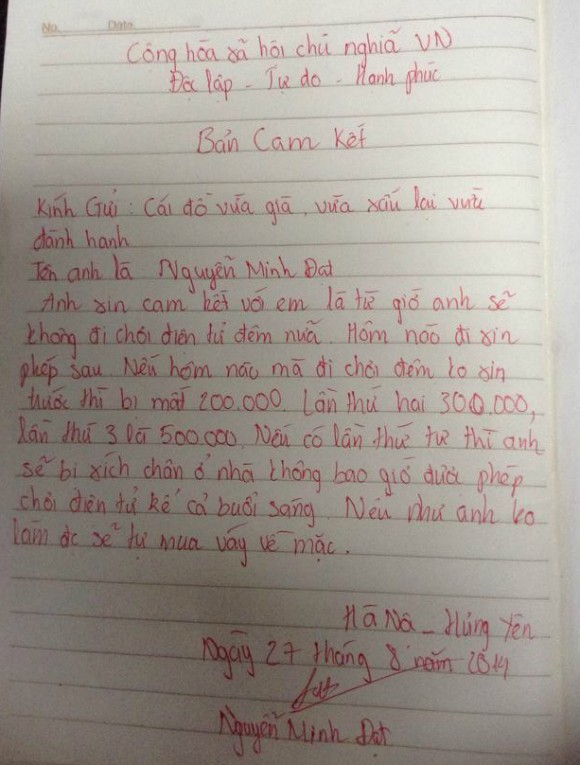 No. Date.
Công hòa xã hôi chủ nghiã VN
Đôc lâp - Tư do - Hanh phúc
Bản Cam Kết
Kính Gửi : Cái đồ vừa già, vừa xấu lại vừa
đành hanh
Tên anh là Nguyễn Minh Đạt
Anh xin cam kết với em là từ giờ anh sẽ
không đi chơi điện tử đêm nữa. Hôm nào đi xin
phép sau. Nếu hôm nào mà đi chơi đêm ko xin
trước thì bị mất 200.000. Lần thứ hai 300.000,
lần thứ 3 là 500.000. Nếu có lần thứ tư thì anh
sẽ bị xích chân ở nhà không bao giờ được phép
chơi điện tử kể cả buổi sáng. Nếu như anh ko
làm đc sẽ tự mua váy về mặc.
Hà Nội - Hưng Yên
Ngày 27 tháng 8 năm 2014
Nguyễn Minh Đạt